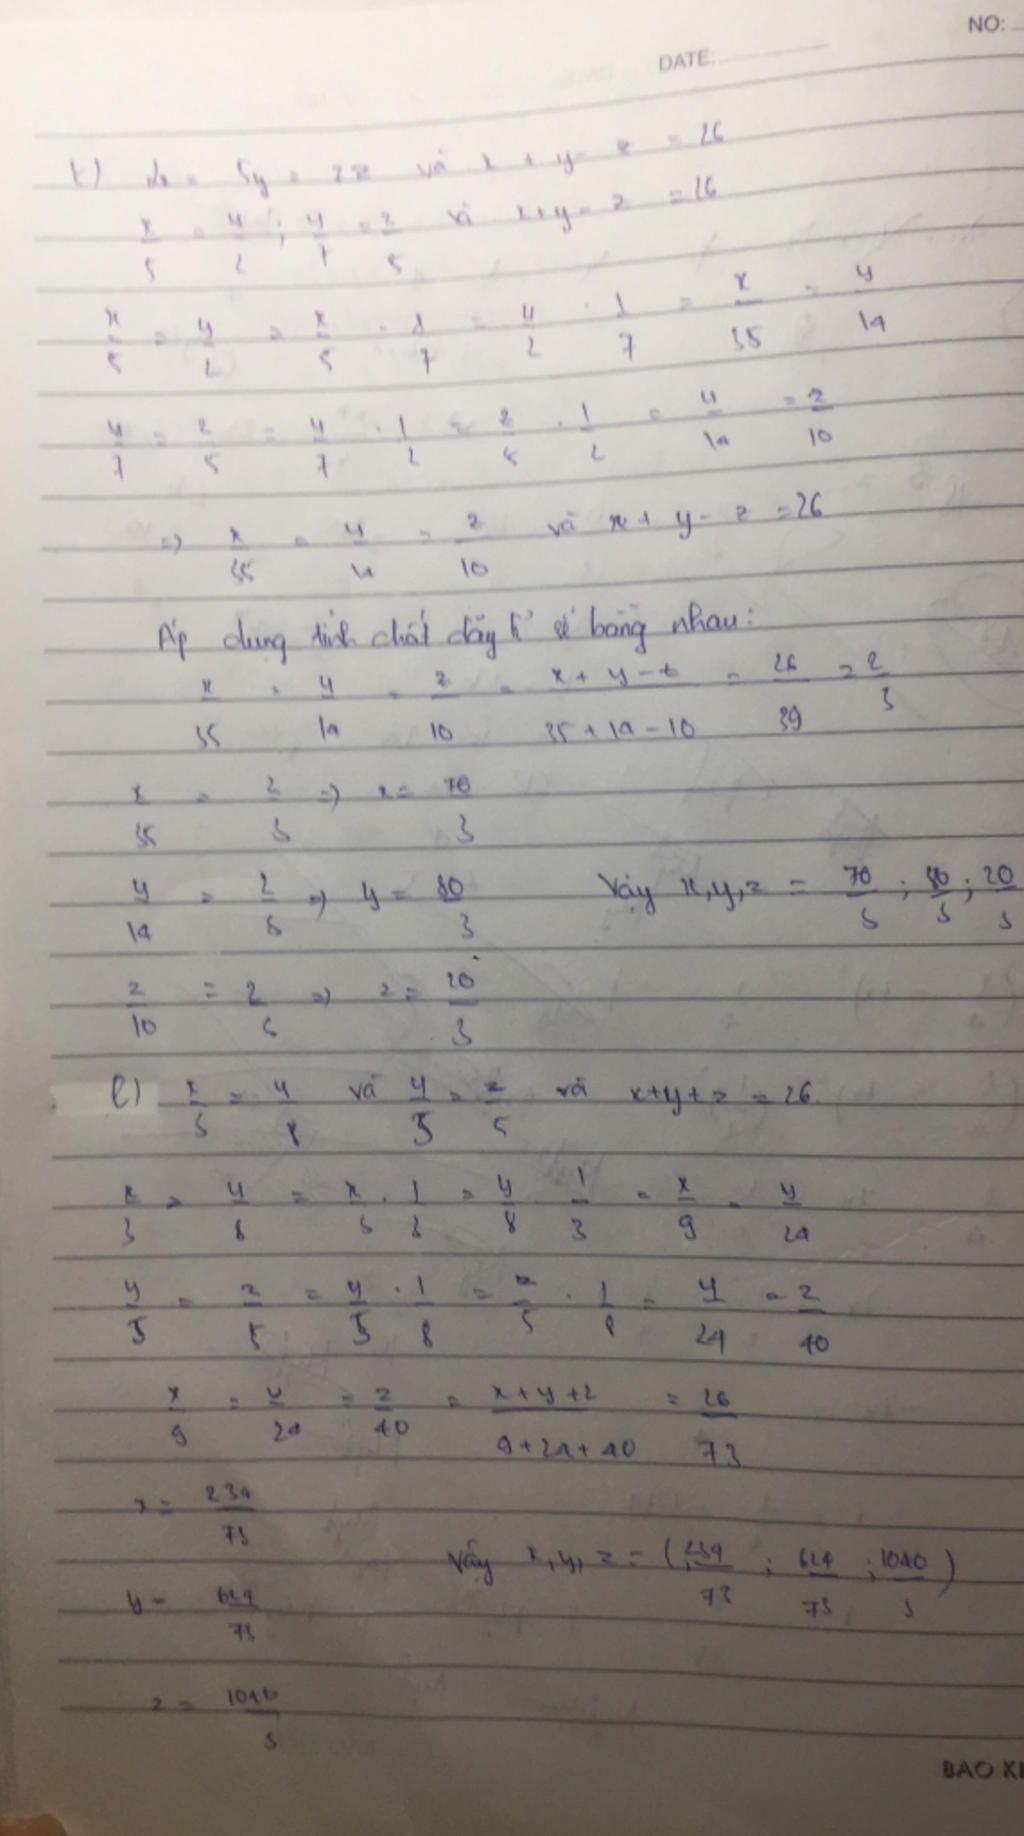 NO:
DATE:
k) 2x = 5y = 7z và x + y - z = 26
x/5 = y/2 ; y/7 = z/5 và x+y- z = 26
x/5 = y/2 = x/5 . 1/7 = y/2 . 1/7 = x/35 = y/14
y/7 = z/5 = y/7 . 1/2 = z/5 . 1/2 = y/14 = z/10
=> x/35 = y/14 = z/10 và x+ y- z = 26
Áp dụng tính chất dãy tỉ số bằng nhau:
x/35 = y/14 = z/10 = x+ y-z/35+14-10 = 26/39 = 2/3
x/35 = 2/3 => x = 70/3
y/14 = 2/3 => y = 80/3 Vậy x,y,z = 70/3 ; 80/3 ; 20/3
z/10 = 2/3 => z = 20/3
l) x/3 = y/8 và y/3 = z/5 và x+y+z = 26
x/3 = y/8 = x/3 . 1/3 = y/8 1/3 = x/9 = y/24
y/3 = z/5 = y/3 . 1/8 = z/5 . 1/8 = y/24 = z/40
x/9 = y/24 = z/40 = x+y+z/9+24+40 = 26/73
x = 234/73
y = 624/73 Vậy x,y,z = (234/73 ; 624/73 ; 1040/3)
z = 1040/3
BAO KE